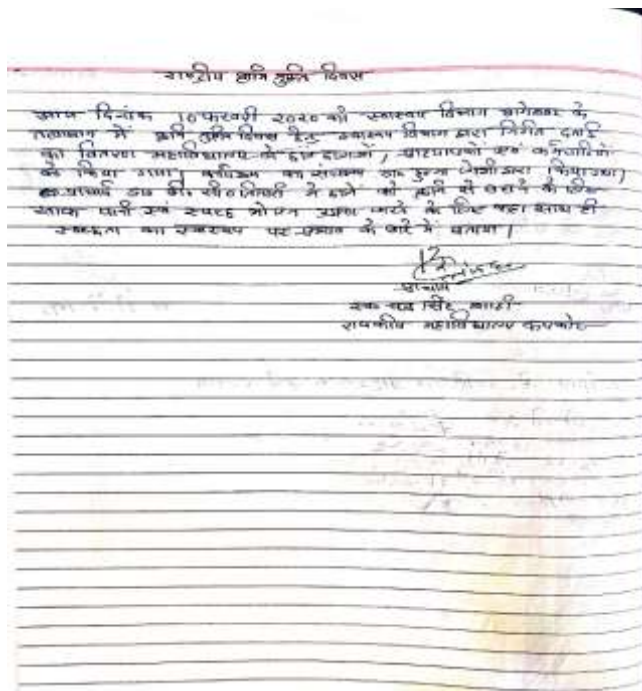 राष्ट्रीय कृमि मुक्ति दिवस
आज दिनांक 10 फरवरी 2020 को स्वास्थ्य विभाग बागेश्वर के
तत्वाधान में कृमि मुक्ति दिवस हेतु स्वास्थ्य विभाग द्वारा निर्मित दवाई
का वितरण महाविद्यालय के छात्र छात्राओं, प्राध्यापकों एवं कर्मचारियों
को किया गया। कार्यक्रम का संचालन डा० जोशी द्वारा किया गया।
प्राचार्य डा० बी० सी० तिवारी ने छात्रों को कृमि से बचाने के लिए
साफ पानी एवं स्वच्छ भोजन करने के लिए कहा साथ ही
स्वच्छता का स्वास्थ्य पर प्रभाव के बारे में बताया।
प्राचार्य
स्व० चन्द्र सिंह शाही
राजकीय महाविद्यालय कपकोट